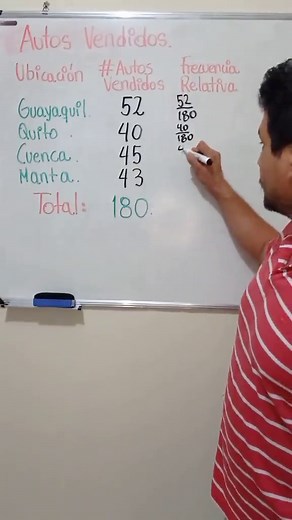 Autos Vendidos.
Ubicación #Autos Vendidos Frecuencia Relativa
Guayaquil. 52 52/180
Quito. 40 40/180
Cuenca. 45
Manta. 43
Total: 180.